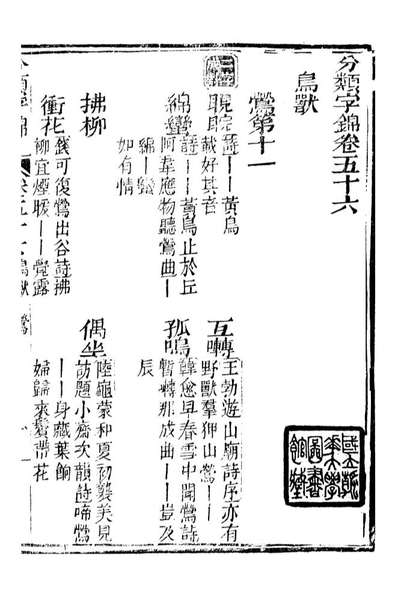 分類字錦卷五十六
鳥獸
鶯第十一
睍睆
詩——黃鳥
載好其音
互囀
王勃遊山廟詩序亦有
野獸羣狎山鶯——
綿蠻
詩——黃鳥止於丘
阿韋應物聽鶯曲——
綿——蠻
如有情
孤鳴
韓愈早春雪中聞鶯詩
暫囀那成曲——豈及
辰
拂柳
錢可復鶯出谷詩拂
柳宜煙暖——覺露
衝花
偶坐
陸龜蒙和夏初襲美見
訪題小齋次韻詩啼鶯
——身藏葉餉
婦歸來鬢帶花
分類字錦
卷五十六 鳥獸 鶯
一